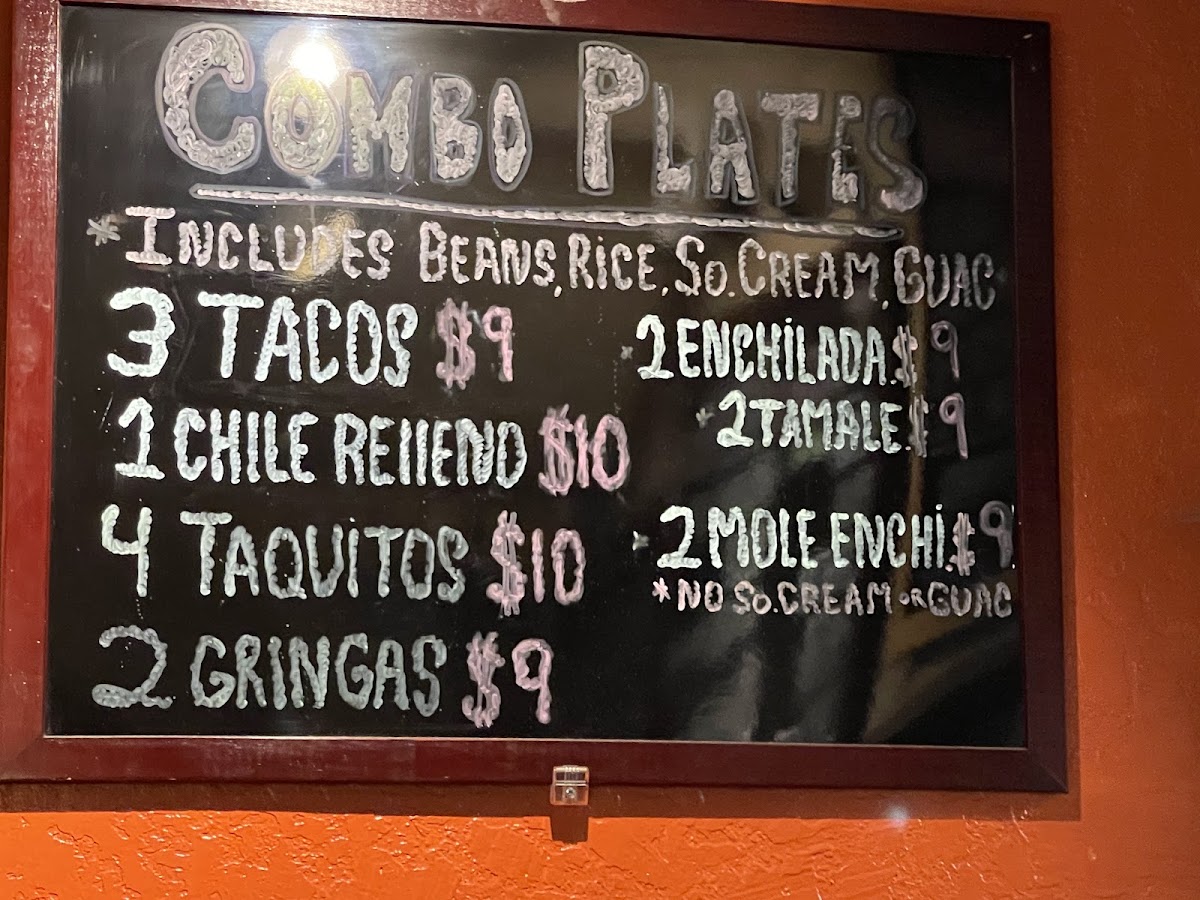 COMBO PLATES
*INCLUDES BEANS, RICE, SO. CREAM, GUAC
3 TACOS $9
1 CHILE RELLENO $10
4 TAQUITOS $10
2 GRINGAS $9
*1 ENCHILADA.$9
*1 TAMALE.$9
*2 MOLE ENCHI.$9
*NO SO. CREAM OR GUAC